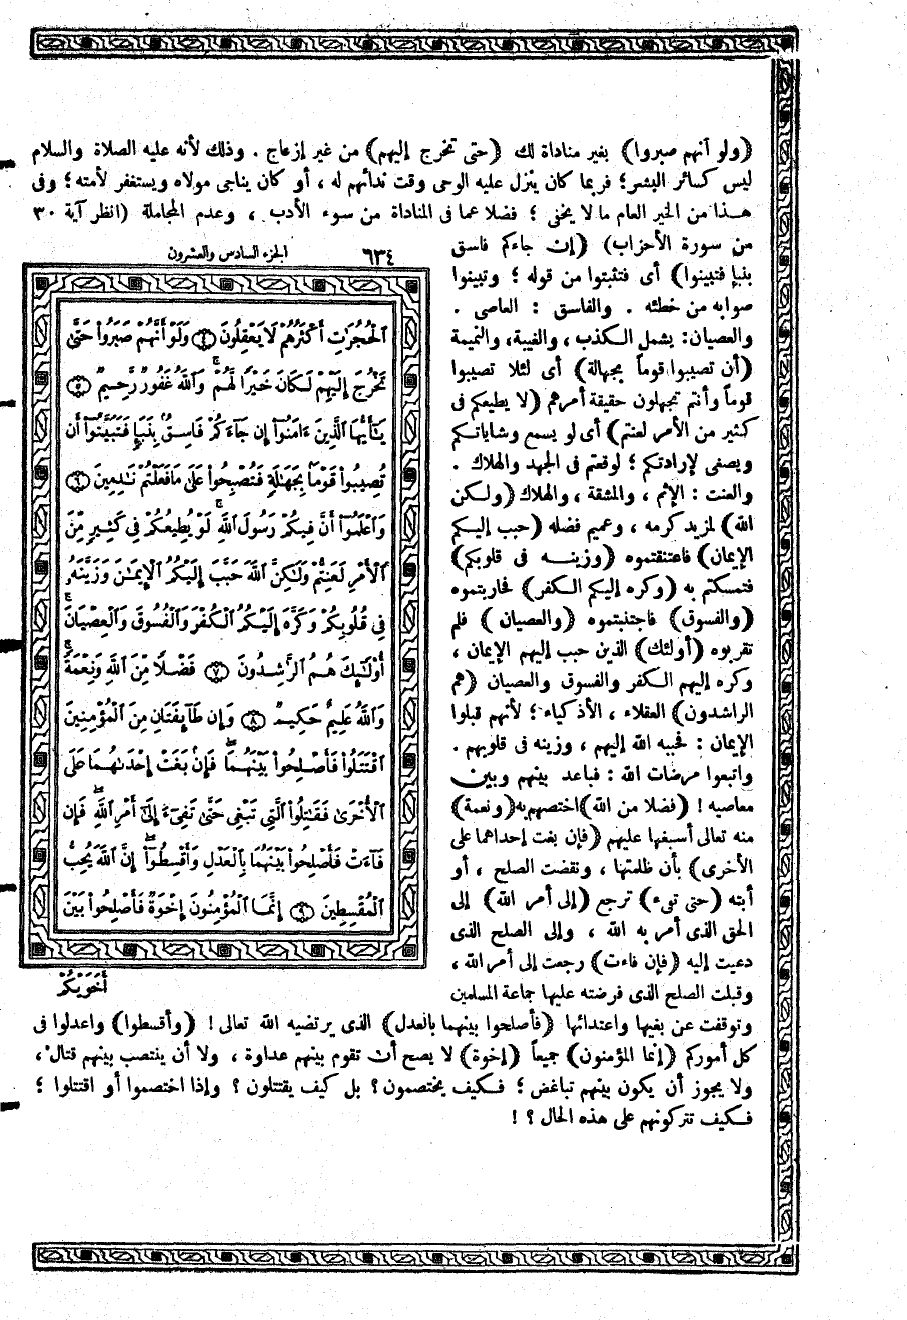 (ولو أنهم صبروا) بغير مناداة لك (حتى تخرج إليهم) من غير إزعاج . وذلك لأنه عليه الصلاة والسلام
ليس كسائر البشر؛ فربما كان ينزل عليه الوحى وقت ندائهم له ، أو كان يناجى مولاه ويستغفر لأمته؛ وفى
هذا من الخير العام ما لا يخفى ؛ فضلا عما فى المناداة من سوء الأدب ، وعدم المجاملة (انظر آية ٣٠
من سورة الأحزاب) (إن جاءكم فاسق
بنبإ فتبينوا) أى فتثبتوا من قوله ؛ وتبينوا
صوابه من خطئه . والفاسق : العاصى .
والعصيان: يشمل الكذب ، والغيبة، والنميمة
(أن تصيبوا قوماً بجهالة) أى لئلا تصيبوا
قوماً وأنتم تجهلون حقيقة أمرهم (لا يطيعكم فى
كثير من الأمر لعنتم) أى لو يسمع وشاياتكم
ويصغى لإرادتكم؛ لوقعتم فى الجهد والهلاك .
والعنت : الإثم ، والمشقة ، والهلاك (ولكن
الله) لمزيد كرمه ، وعميم فضله (حبب إليكم
الإيمان) فاعتنقتموه (وزينه فى قلوبكم)
فتمسكتم به (وكره إليكم الكفر) فحاربتموه
(والفسوق) فاجتنبتموه (والعصيان) فلم
تقربوه (أولئك) الذين حبب إليهم الإيمان ،
وكره إليهم الكفر والفسوق والعصيان (هم
الراشدون) العقلاء ، الأذكياء ؛ لأنهم قبلوا
الإيمان : فحببه الله إليهم ، وزينه فى قلوبهم .
واتبعوا مرضات الله : فباعد بينهم وبين
معاصيه ! (فضلا من الله) اختصهم به (ونعمة)
منه تعالى أسبغها عليهم (فإن بغت إحداهما على
الأخرى) بأن ظلمتها ، ونقضت الصلح ، أو
أبته (حتى تفىء) ترجع (إلى أمر الله) إلى
الحق الذى أمر به الله ، وإلى الصلح الذى
دعيت إليه (فإن فاءت) رجعت إلى أمر الله ،
وقبلت الصلح الذى فرضته عليها جماعة المسلمين
الجزء السادس والعشرون ٦٣٤
ٱلْحُجُرَٰتِ أَكْثَرُهُمْ لَا يَعْقِلُونَ ٤ وَلَوْ أَنَّهُمْ صَبَرُوا۟ حَتَّىٰ
تَخْرُجَ إِلَيْهِمْ لَكَانَ خَيْرًا لَّهُمْ ۚ وَٱللَّهُ غَفُورٌ رَّحِيمٌ ٥
يَـٰٓأَيُّهَا ٱلَّذِينَ ءَامَنُوٓا۟ إِن جَآءَكُمْ فَاسِقٌۢ بِنَبَإٍ فَتَبَيَّنُوٓا۟ أَن
تُصِيبُوا۟ قَوْمًۢا بِجَهَـٰلَةٍ فَتُصْبِحُوا۟ عَلَىٰ مَا فَعَلْتُمْ نَـٰدِمِينَ ٦
وَٱعْلَمُوٓا۟ أَنَّ فِيكُمْ رَسُولَ ٱللَّهِ ۚ لَوْ يُطِيعُكُمْ فِى كَثِيرٍ مِّنَ
ٱلْأَمْرِ لَعَنِتُّمْ وَلَـٰكِنَّ ٱللَّهَ حَبَّبَ إِلَيْكُمُ ٱلْإِيمَـٰنَ وَزَيَّنَهُۥ
فِى قُلُوبِكُمْ وَكَرَّهَ إِلَيْكُمُ ٱلْكُفْرَ وَٱلْفُسُوقَ وَٱلْعِصْيَانَ ۚ
أُو۟لَـٰٓئِكَ هُمُ ٱلرَّٰشِدُونَ ٧ فَضْلًا مِّنَ ٱللَّهِ وَنِعْمَةً ۚ
وَٱللَّهُ عَلِيمٌ حَكِيمٌ ٨ وَإِن طَآئِفَتَانِ مِنَ ٱلْمُؤْمِنِينَ
ٱقْتَتَلُوا۟ فَأَصْلِحُوا۟ بَيْنَهُمَا ۖ فَإِنۢ بَغَتْ إِحْدَىٰهُمَا عَلَى
ٱلْأُخْرَىٰ فَقَـٰتِلُوا۟ ٱلَّتِى تَبْغِى حَتَّىٰ تَفِىٓءَ إِلَىٰٓ أَمْرِ ٱللَّهِ ۚ فَإِن
فَآءَتْ فَأَصْلِحُوا۟ بَيْنَهُمَا بِٱلْعَدْلِ وَأَقْسِطُوٓا۟ ۖ إِنَّ ٱللَّهَ يُحِبُّ
ٱلْمُقْسِطِينَ ٩ إِنَّمَا ٱلْمُؤْمِنُونَ إِخْوَةٌ فَأَصْلِحُوا۟ بَيْنَ
أَخَوَيْكُمْ
وتوقفت عن بغيها واعتدائها (فأصلحوا بينهما بالعدل) الذى يرتضيه الله تعالى ! (وأقسطوا) واعدلوا فى
كل أموركم (إنما المؤمنون) جميعاً (إخوة) لا يصح أن تقوم بينهم عداوة ، ولا أن ينتصب بينهم قتال ،
ولا يجوز أن يكون بينهم تباغض ؛ فكيف يختصمون ؟ بل كيف يقتتلون ؟ وإذا اختصموا أو اقتتلوا ؛
فكيف تتركونهم على هذه الحال ؟ !